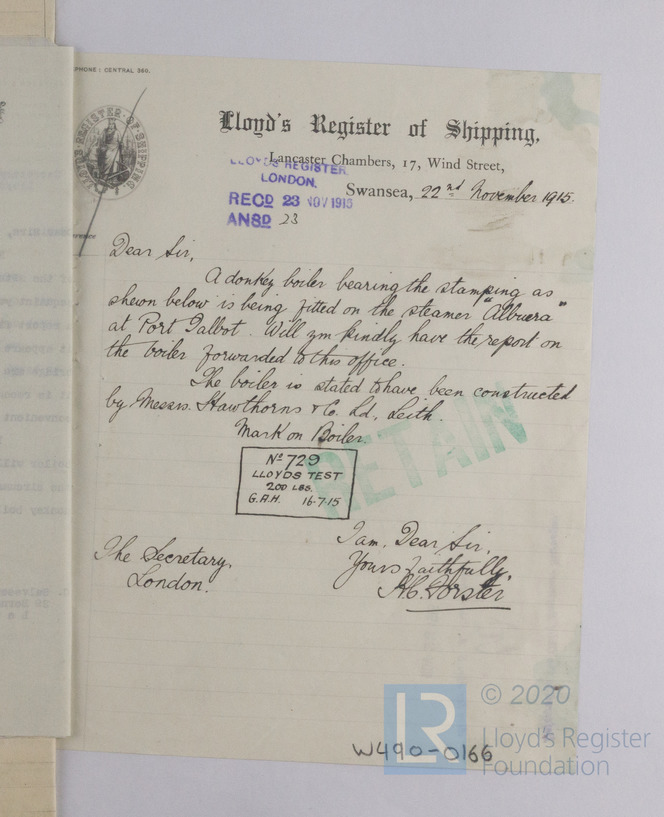 PHONE: CENTRAL 360.
LLOYD'S REGISTER OF SHIPPING
Lloyd's Register of Shipping,
Lancaster Chambers, 17, Wind Street,
LLOYD'S REGISTER
LONDON.
Swansea, 22nd November 1915.
RECD 23 NOV 1915
ANSD 23
Dear Sir,
A donkey boiler bearing the stamping as
shewn below is being fitted on the steamer "Albuera"
at Port Talbot. Will you kindly have the report on
the boiler forwarded to this office.
The boiler is stated to have been constructed
by Messrs. Hawthorns & Co. Ld, Leith.
Mark on Boiler.
RETAIN
No 729
LLOYDS TEST
200 LBS.
G.A.H. 16-7-15
I am, Dear Sir,
Yours faithfully
The Secretary,
London.
W490-0166
LR
© 2020
Lloyd's Register
Foundation